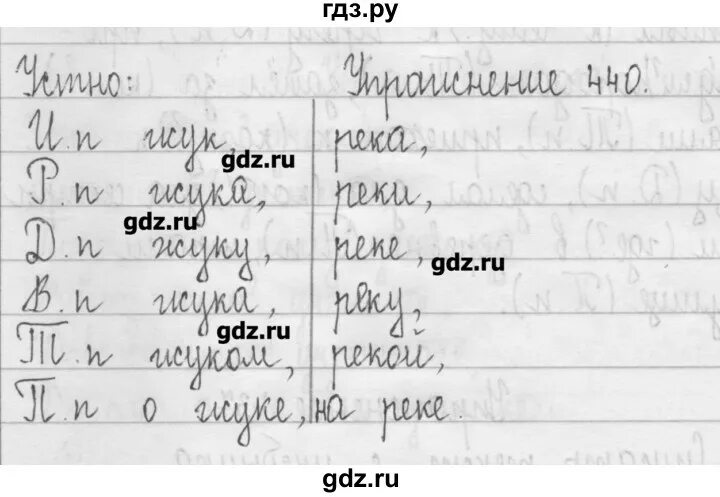 гдз.ру
Устно: Упражнение 440.
И.п жук, река,
gdz.ru
Р.п жука, реки,
gdz.ru
Д.п жуку, реке,
gdz.ru
В.п жука, реку,
gdz.ru
Т.п жуком, рекой,
П.п о жуке, на реке.
gdz.ru